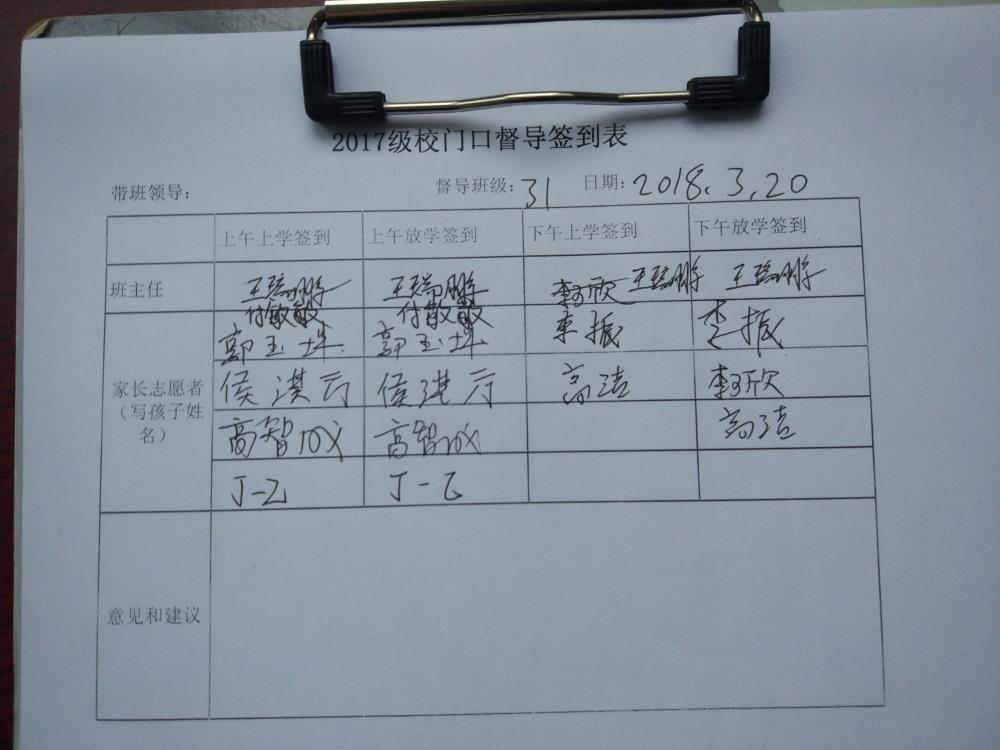 2017级校门口督导签到表
带班领导: 督导班级: 31 日期: 2018.3.20
上午上学签到 上午放学签到 下午上学签到 下午放学签到
班主任 王瑞鹏 王瑞鹏 王瑞鹏 王瑞鹏
付敏敏 付敏敏
郭玉坤 郭玉坤 李振 李振
家长志愿者
(写孩子姓
名)
侯淇方 侯淇方 高洁
高智成 高智成 高洁
丁一乙 丁一乙
意见和建议